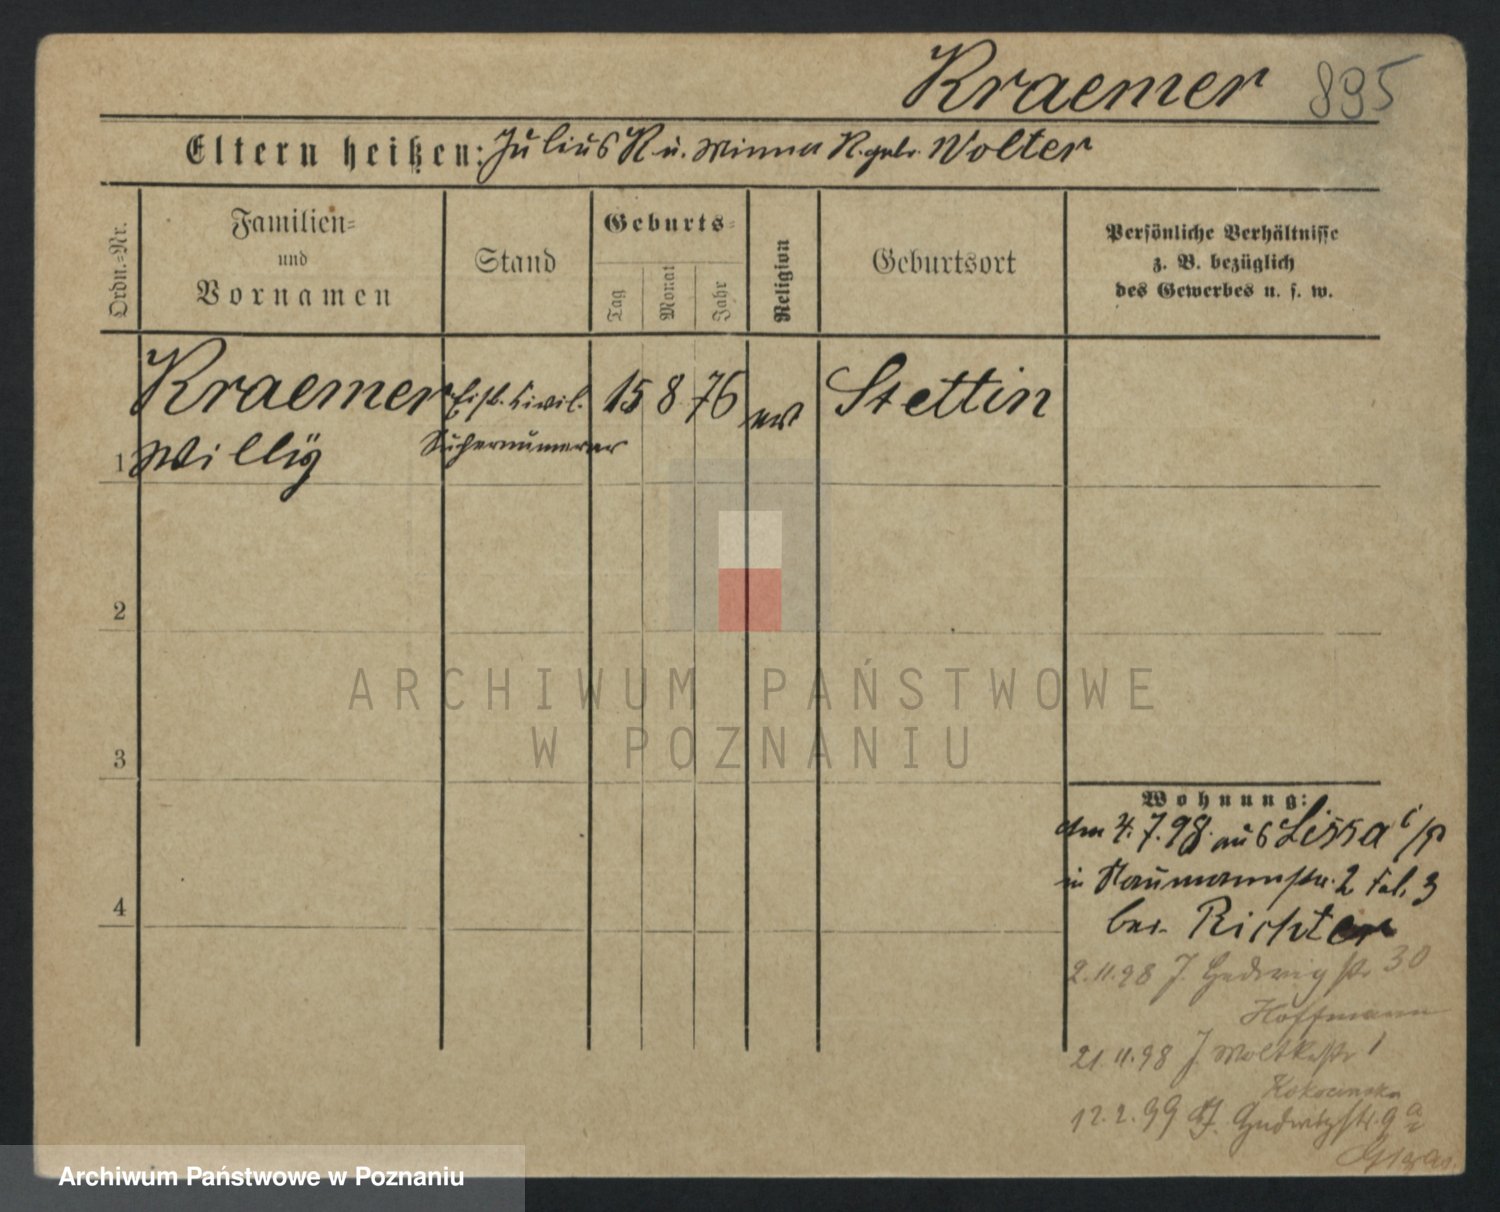 Kraemer 895
Eltern heißen: Julius K u. Minna K. geb. Wolter
Ordn.-Nr.
Familien-
und
Vornamen
Stand
Geburts-
Tag
Monat
Jahr
Religion
Geburtsort
Persönliche Verhältnisse
z. B. bezüglich
des Gewerbes u. s. w.
Kraemer Eisb. Civil. 15 8 76 ev Stettin
1 Willÿ Supernumerar
2
3
4
Wohnung:
Am 4.7.98. aus Lissa i/P
in Naumannstr. 2 Tel. 3
bei Richter
2.11.98 J. Hedwigstr 30
Hoffmann
21.11.98 J. Moltkestr 1
Kokocinska
12.2.99 J. Hedwigstr. 9a
ARCHIWUM PAŃSTWOWE
W POZNANIU
Archiwum Państwowe w Poznaniu